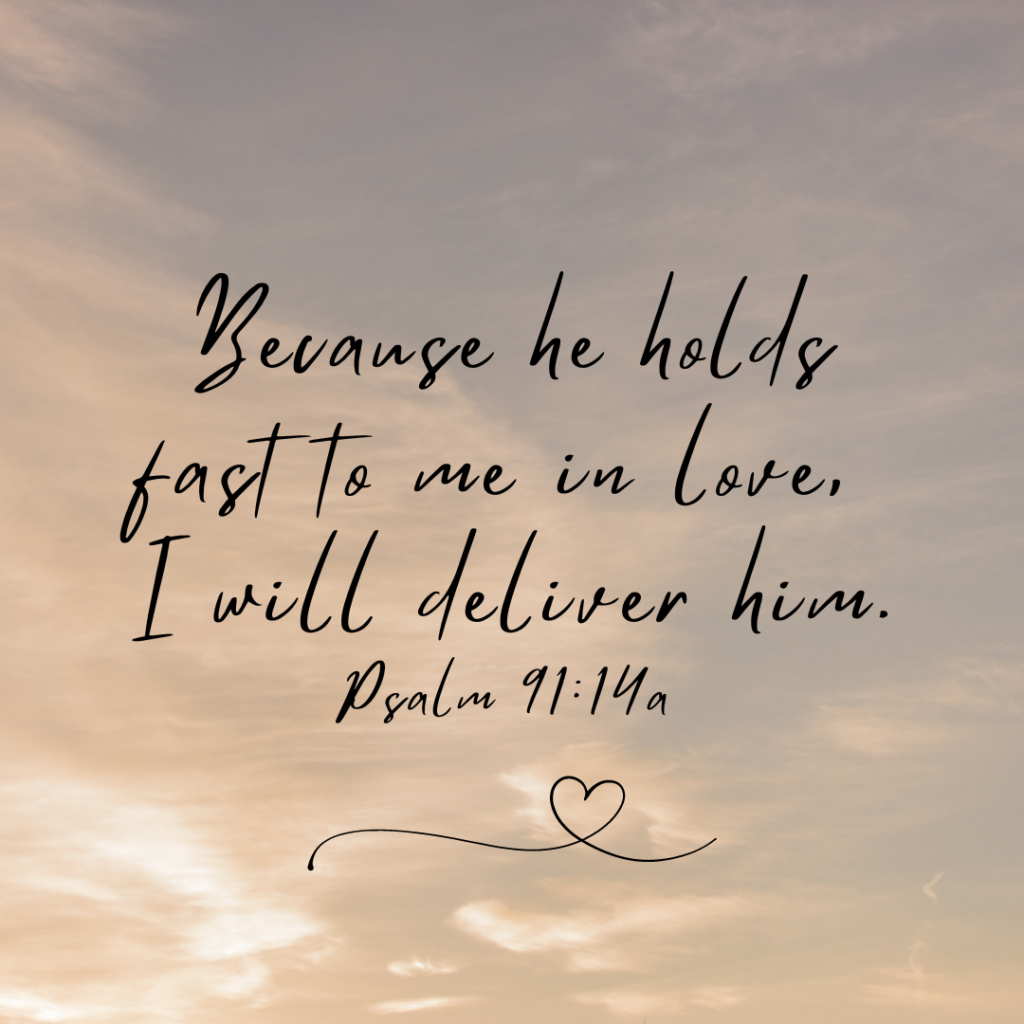 Because he holds
fast to me in love,
I will deliver him.
Psalm 91:14a